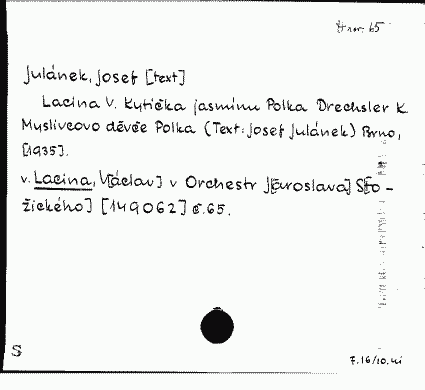 Julánek, Josef [text]
Lacina V. Kytička jasmínu Polka Drechsler K.
Myslivcovo děvče Polka (Text: Josef Julánek) Brno,
[1935].
v. Lacina, V[áclav] v Orchestr J[aroslava] S[to-
žického] [149062] č. 65.
S
7.16/10.